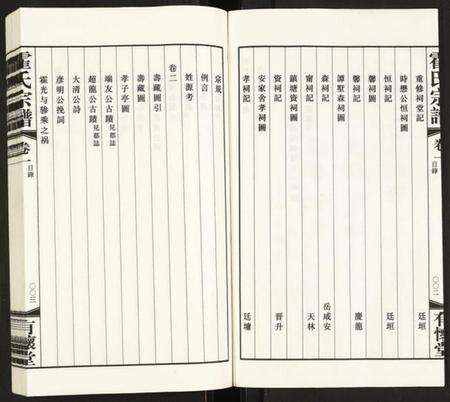 霍氏宗譜
卷一
目錄
〇〇二
有懷堂
重修祠堂記 廷垣
時懋公恒祠圖
恒祠記 廷垣
馨祠圖
馨祠記 慶龍
譚墅森祠圖
森祠記 岳咸安
甯祠記 天林
鎮塘資祠圖
資祠記 晉升
安家舍孝祠圖
孝祠記 廷壎
宗規
例言
姓源考
卷二
壽藏圖引
壽藏圖
孝子亭圖
端友公古蹟 見郡誌
超龍公古蹟 見郡誌
大清公詩
彥明公挽詞
霍光与驂乘之禍
霍氏宗譜
卷一
目錄
〇〇三
有懷堂